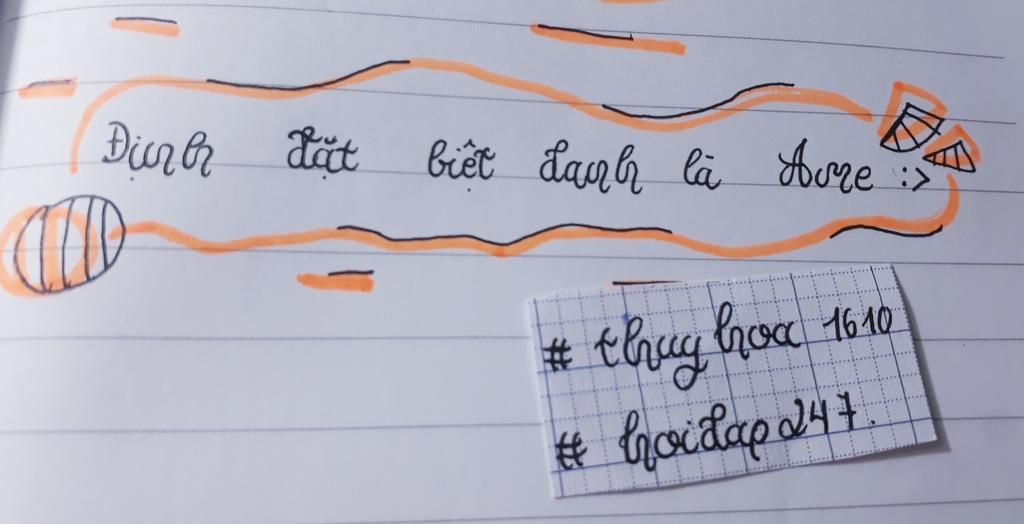 Định đặt biệt danh là Ame :>
# thuy hoa 1610
# hoidap247.